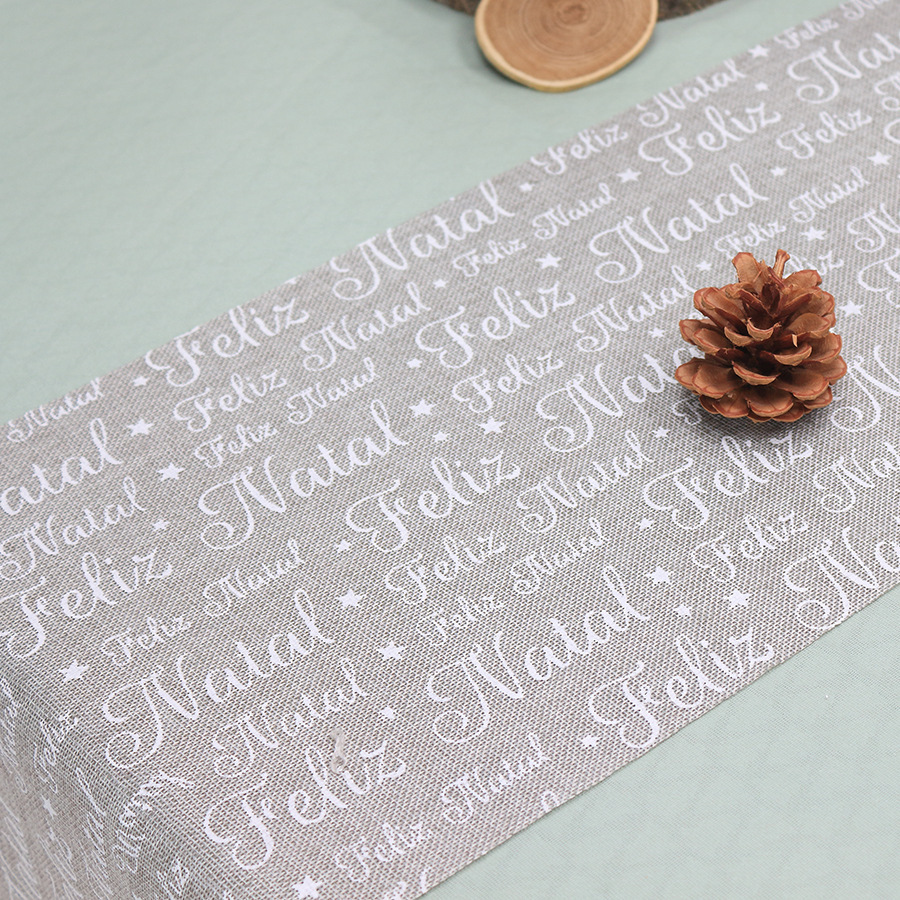 Feliz
Feliz Natal
Feliz Natal
Feliz Natal
Feliz Natal
Natal Feliz Natal
Natal Feliz Natal Feliz Natal
Feliz Natal Feliz Natal
Natal Feliz Natal Feliz Natal
Feliz Natal Feliz Natal
Feliz Natal Feliz Natal
Natal Feliz Natal
Feliz Natal Feliz
Feliz Natal